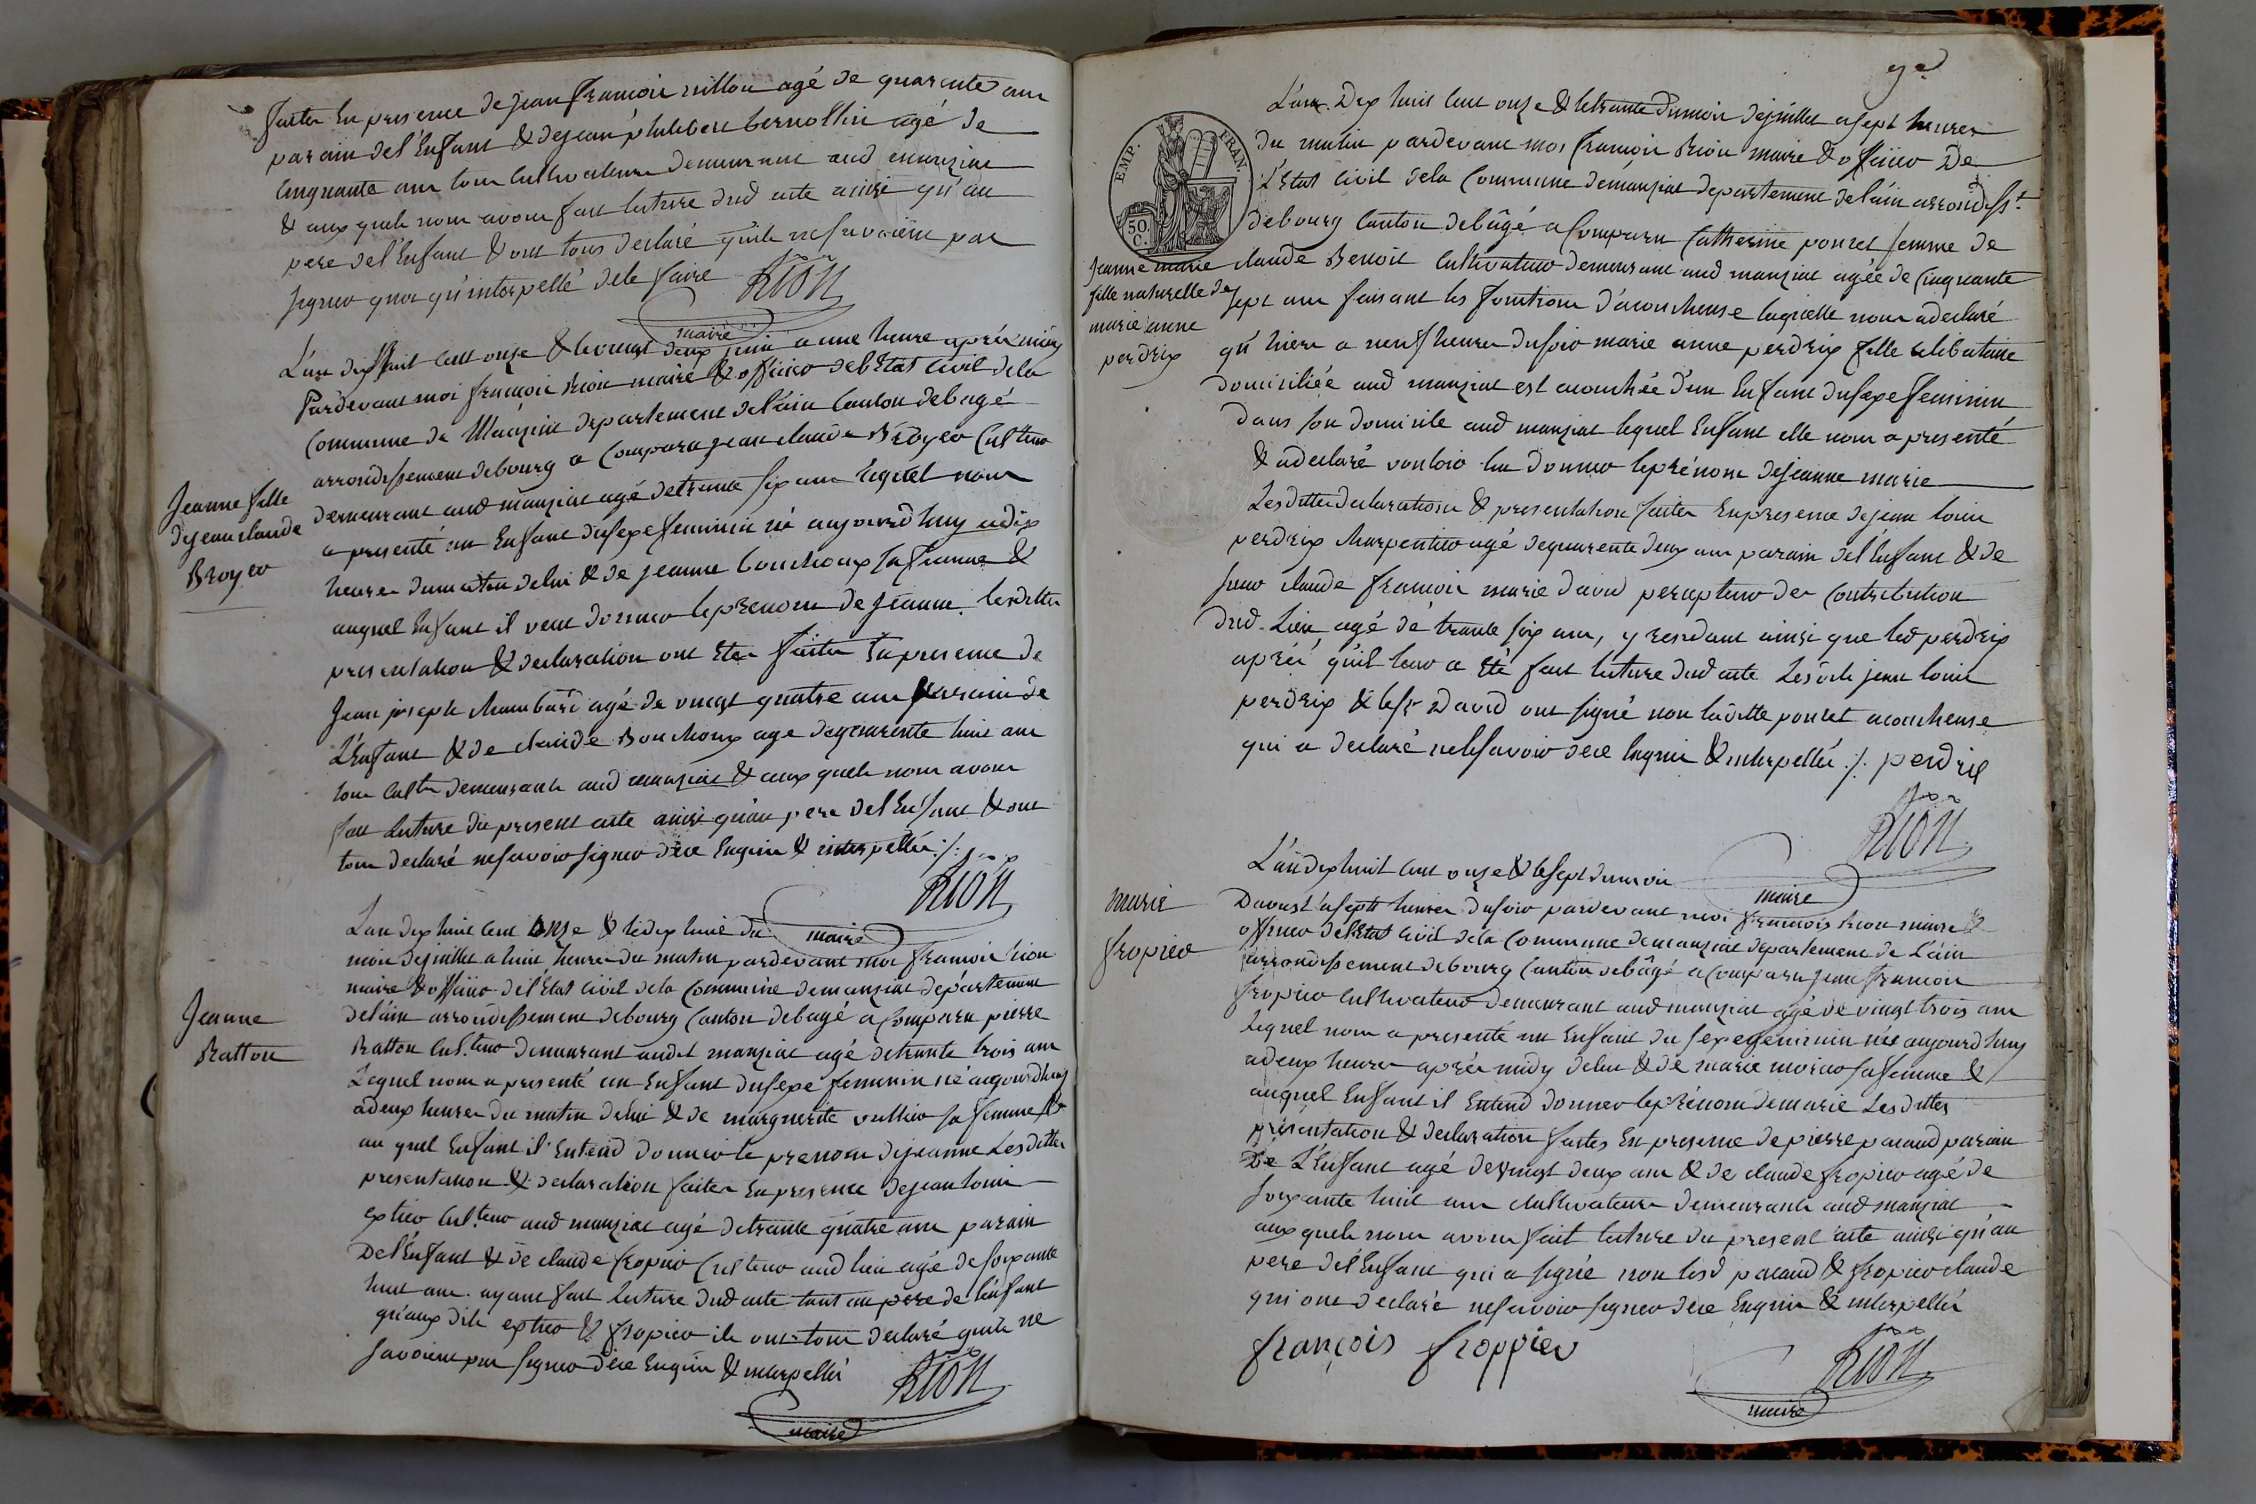 faites En presence de jean françois villon agé de quarente ans
parain del'Enfant & de jean philibert bernollin agé de
Cinquante ans tous Cultivateurs demeurant aud manziat
& aux quels nous avons fait lecture dud acte ainsi qu'au
pere del'Enfant & ont tous declaré qu'ils ne savoient pas
signer quoi qu'interpellé dele faire RION
maire
L'an dix huit cent onze & le vingt deux juin a une heure après midy
Pardevant moi françois Rion maire & officier del'Etat Civil dela
Commune de Manziat departement del'ain Canton debagé
arrondissement debourg a Comparu jean claude Broyer Cult.teur
Jeanne fille
dejean claude
Broyer
demeurant aud manziat agé detrente six ans lequel nous
a presenté un Enfant dusexe feminin né aujourd'huy a dix
heures dumatin delui & de jeanne Bouchoux sa femme &
auquel Enfant il veut donner leprenom de jeanne. lesdittes
presentation & declaration ont Etés faites En presence de
Jean joseph Chambard agé de vingt quatre ans parain de
L'Enfant & de claude Bouchoux age dequarente huit ans
tous Cult.rs demeurants aud manziat & aux quels nous avons
fait lecture du present acte ainsi qu'au pere del'Enfant & ont
tous declaré nesavoir signer dece Enquis & interpellés ./.
RION
maire
L'an dix huit cent onze & ledix huit du
mois dejuillet a huit heures du matin pardevant moi françois rion
maire & officier del'Etat civil dela Commune demanziat département
del'ain arrondissement debourg Canton debagé a Comparu pierre
Jeanne
Ratton
Ratton Cult.teur demeurant audit manziat agé detrente trois ans
Lequel nous a presenté un Enfant dusexe feminin né aujourd'huy
adeux heures du matin delui & de marguerite vullier sa femme &
au quel Enfant il Entend donner le prenom dejeanne Lesdittes
presentation & declaration faites En presence dejean louis
extier Cult.teur aud manziat agé detrente quatre ans parain
De l'Enfant & de claude fropier Cult.teur aud lieu agé de soixante
huit ans. ayant fait lecture dud acte tant au père de l'enfant
qu'aux dits extier & fropier ils ont tous declaré qu'ils ne
savoient pas signer dece Enquis & interpellés RION
maire
L'an Dix huit Cent onze & letrente dumois dejuillet a sept heures
du matin pardevant moi françois Rion maire & officier De
L'Etat Civil dela Commune demanziat departement del'ain arrondiss.t
EMP. FRAN.
50 C.
debourg Canton debâgé a Comparu Catherine poncet femme de
claude Benoit Cultivateur demeurant aud manziat agée de Cinquante
Jeanne marie
fille naturelle de
marie anne
perdrix
sept ans faisant les fonctions d'acoucheuse laquelle nous adeclaré
qu'hier a neuf heures dusoir marie anne perdrix fille celibataire
domiciliée aud manziat est acouchée d'un Enfant dusexe feminin
dans son domicile aud manziat lequel Enfant elle nous a presenté
& adeclaré vouloir lui donner leprénom dejeanne marie
Lesdittes declaration & presentation faites Enpresence dejean louis
perdrix Charpentier agé dequarente deux ans parain del'Enfant & de
sieur claude françois marie david percepteur des Contribution
dud. Lieu agé de trente six ans, y residant ainsi que led perdrix
après qu'il leur a Eté fait lecture dud acte Lesdits jean louis
perdrix & le s.r David ont signé non laditte poncet acoucheuse
qui a declaré nelesavoir dece Enquis & interpellés ./. perdrix
RION
maire
L'an dix huit cent onze & lesept dumois
marie
fropier
Daoust asept heures dusoir pardevant moi françois Rion maire &
officier del'Etat Civil dela Commune demanziat departement de L'ain
arrondissement debourg Canton debâgé a Comparu jean françois
fropier Cultivateur demeurant aud manziat agé de vingt trois ans
lequel nous a presenté un Enfant du sexe feminin née aujourd'huy
adeux heures après midy delui & de marie morier sa femme &
auquel Enfant il Entend donner leprénom demarie Lesdittes
présentation & declaration faites En presence de pierre pacaud parain
De L'Enfant agé devingt deux ans & de claude fropier agé de
soixante huit ans Cultivateurs demeurants aud manziat
aux quels nous avons fait lecture du present acte ainsi qu'au
père del'Enfant qui a signé non lesd pacaud & fropier claude
qui ont declaré nesavoir signer dece Enquis & interpellés
françois froppier RION
maire